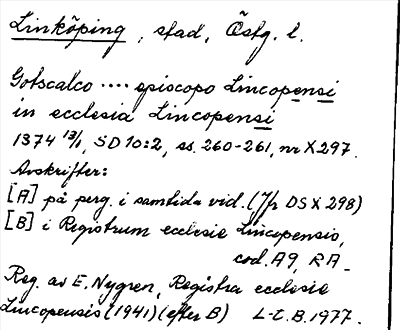 Linköping, stad, Östg. l.
Gotscalco .... episcopo Lincopensi
in ecclesia Lincopensi
1374 13/1, SD 10:2, ss. 260-261, nr X 297.
Avskrifter:
[A] på perg. i samtida vid. (Jfr DS X 298)
[B] i Registrum ecclesie Lincopensis,
cod. A9, RA.
Reg. av E. Nygren, Registra ecclesie
Lincopensis (1941) (efter B) L-E. B. 1977.